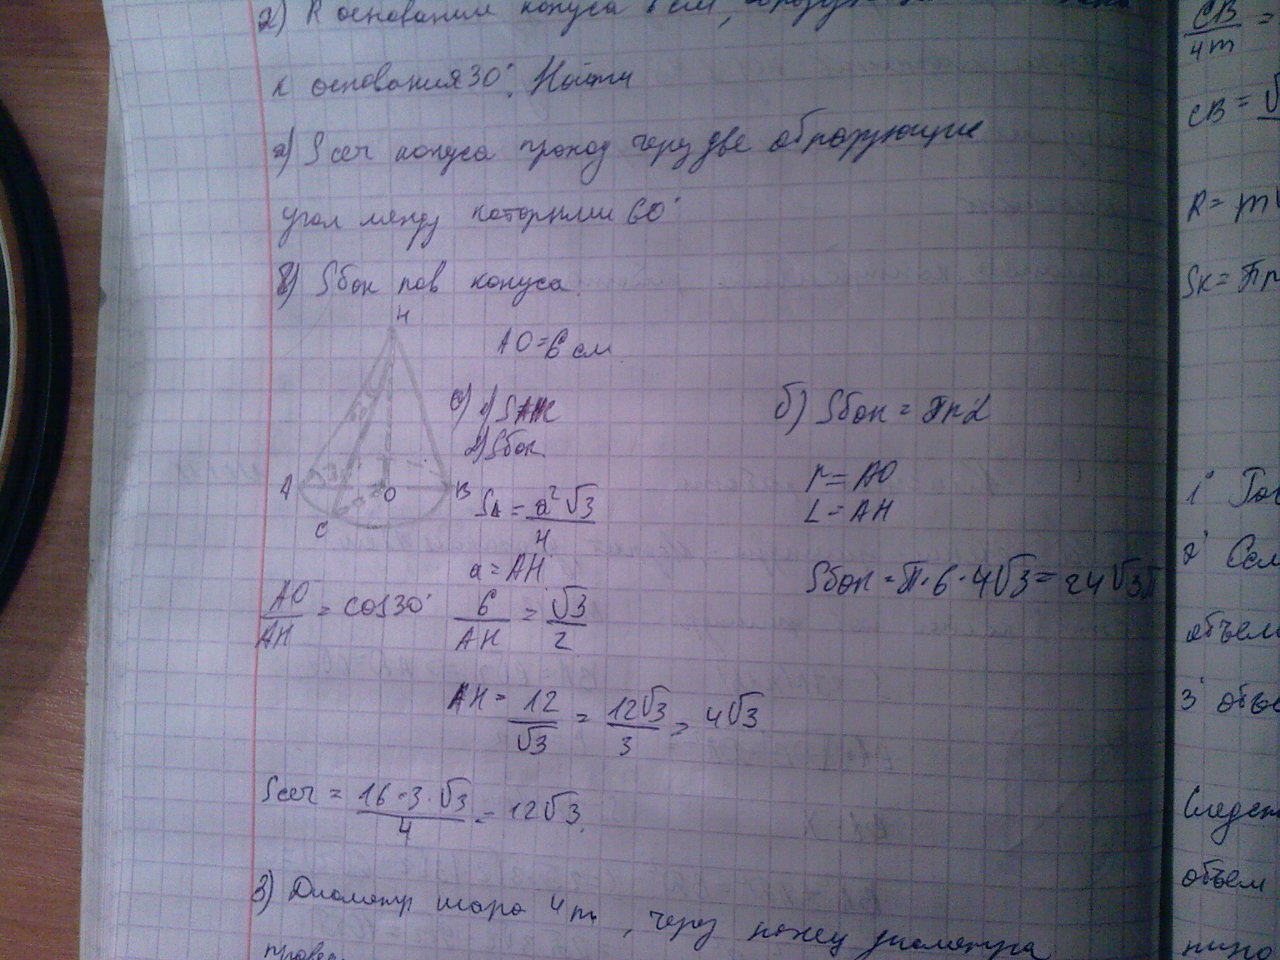 2) R основания конуса 6 см,
к основания 30°. Найти
а) Sсеч конуса проход через две образующие
угол между которыми 60°
б) Sбок пов конуса.
H
AO=6 см
A
O
B
C
2) Sбок
SΔ = a²√3 / 4
a = AH
AO / AH = cos30° 6 / AH = √3 / 2
AH = 12 / √3 = 12√3 / 3 = 4√3
Sсеч = 16·3·√3 / 4 = 12√3.
б) Sбок = πrL
r = AO
L = AH
Sбок = π·6·4√3 = 24√3π
3) Диаметр шара 4m, через конец диаметра
CB / 4m =
CB = √
R = m√
Sк = πr
1°
2°
объем
3° объе
Следст
объем